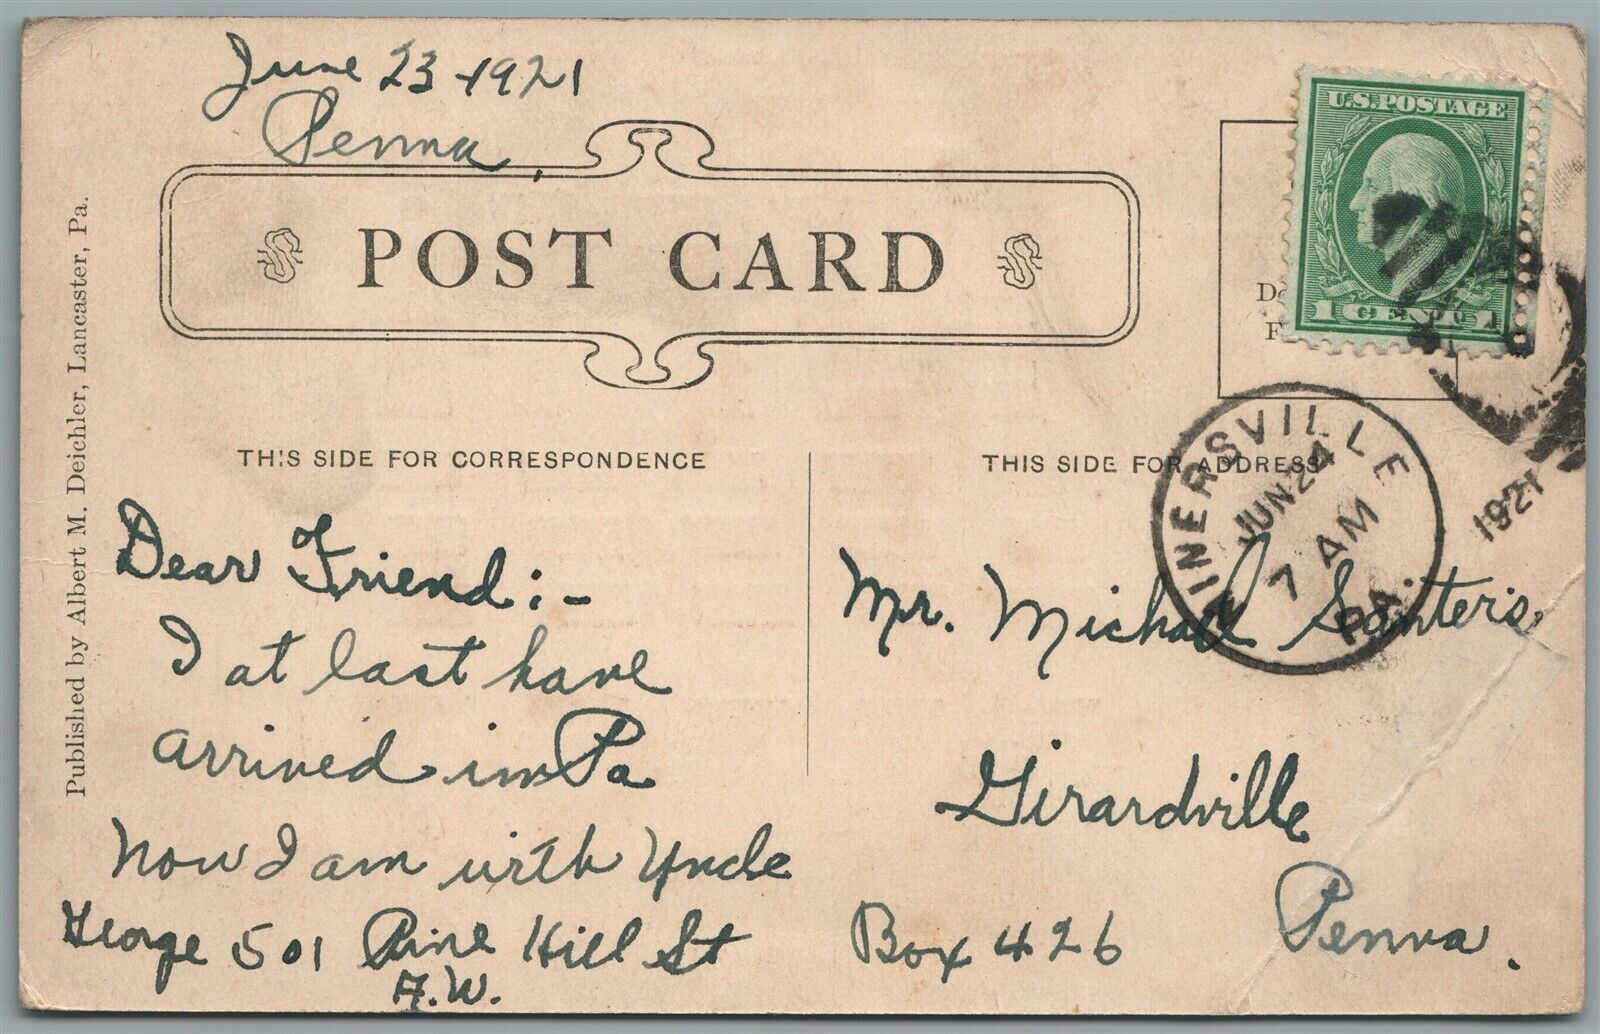 June 23-1921
Penna,
U.S. POSTAGE
1 CENT 1
POST CARD
Published by Albert M. Deichler, Lancaster, Pa.
THIS SIDE FOR CORRESPONDENCE
THIS SIDE FOR ADDRESS
INERSVILLE
JUN 24
7 AM
1921
PA.
Dear Friend:-
I at last have
arrived in Pa
Now I am with Uncle
George 501 Pine Hill St
A.W.
Mr. Michael
Girardville
Box 426 Penna.